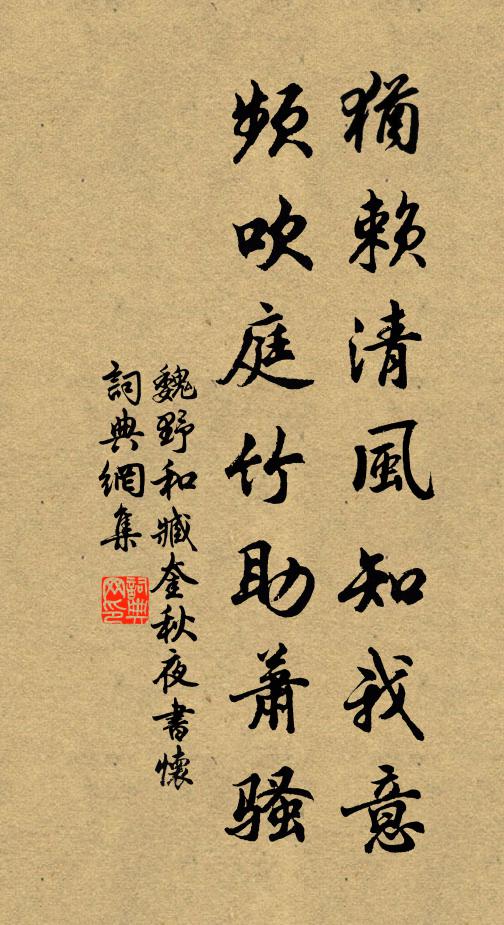 猶賴清風知我意
頻吹庭竹助蕭騷
魏野和臧奎秋夜書懷
詞典網集
詞典
网印